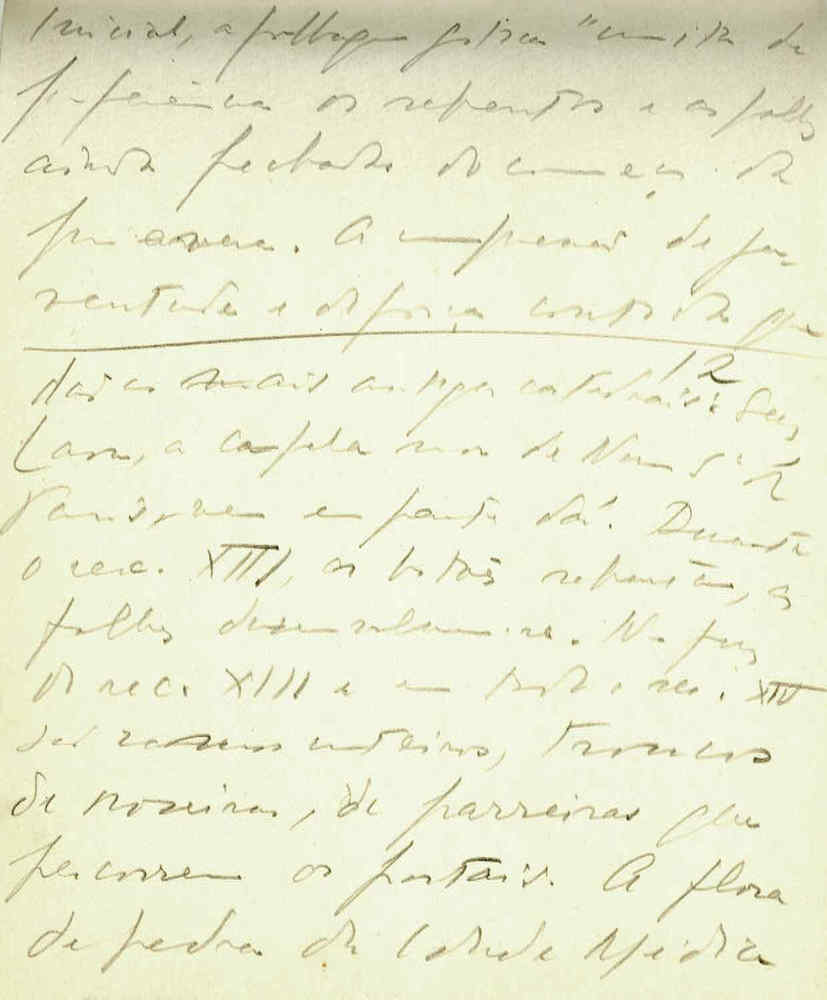 Inicial, a folhagem gótica "imita de
preferência os rebentos e as folhas
ainda fechadas do começo da
primavera. A impressão de ju-
ventude e de força contida que
dão as mais antigas catedrais: Sens,
12
Laon, a capela mor de Nossa S.ª de
Paris, vem em parte daí. Durante
o sec. XIII, os botões rebentam, as
folhas desenvolvem-se. No fim
do sec. XIII e em todo o sec. XIV
são ramos inteiros, troncos
de roseiras, de parreiras que
percorrem os portais. A flora
de pedra da Idade Média